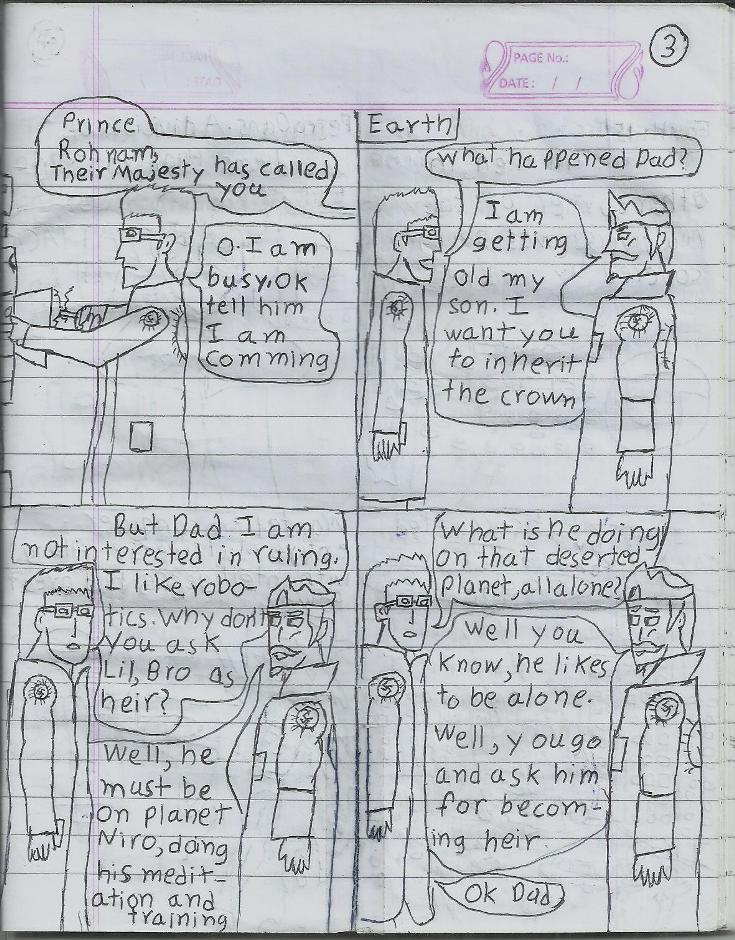 3
PAGE No.:
DATE: / /
Prince
Rohnam,
Their Majesty has called
you
O.I am
busy.Ok
tell him
I am
comming
Earth
What happened Dad?
I am
getting
old my
son. I
want you
to inherit
the crown
But Dad I am
not interested in ruling.
I like robo-
tics. Why dont
you ask
Lil, Bro as
heir?
Well, he
must be
on planet
Niro, doing
his medit-
ation and
training
What is he doing
on that deserted
planet, all alone?
Well you
know, he likes
to be alone.
Well, you go
and ask him
for becom-
ing heir.
Ok Dad